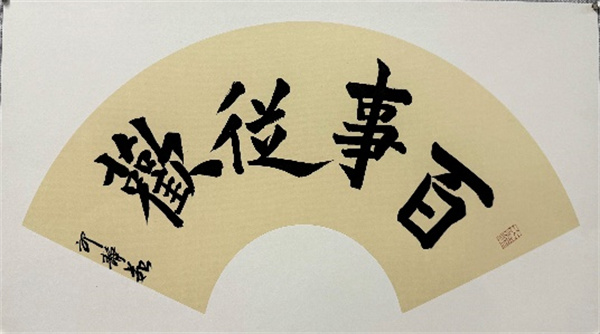 百事從歡